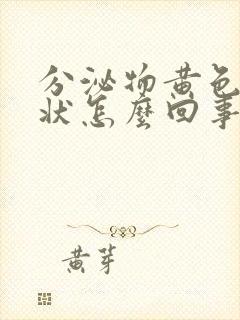 分泌物黄色
状怎麼回事
黄芽